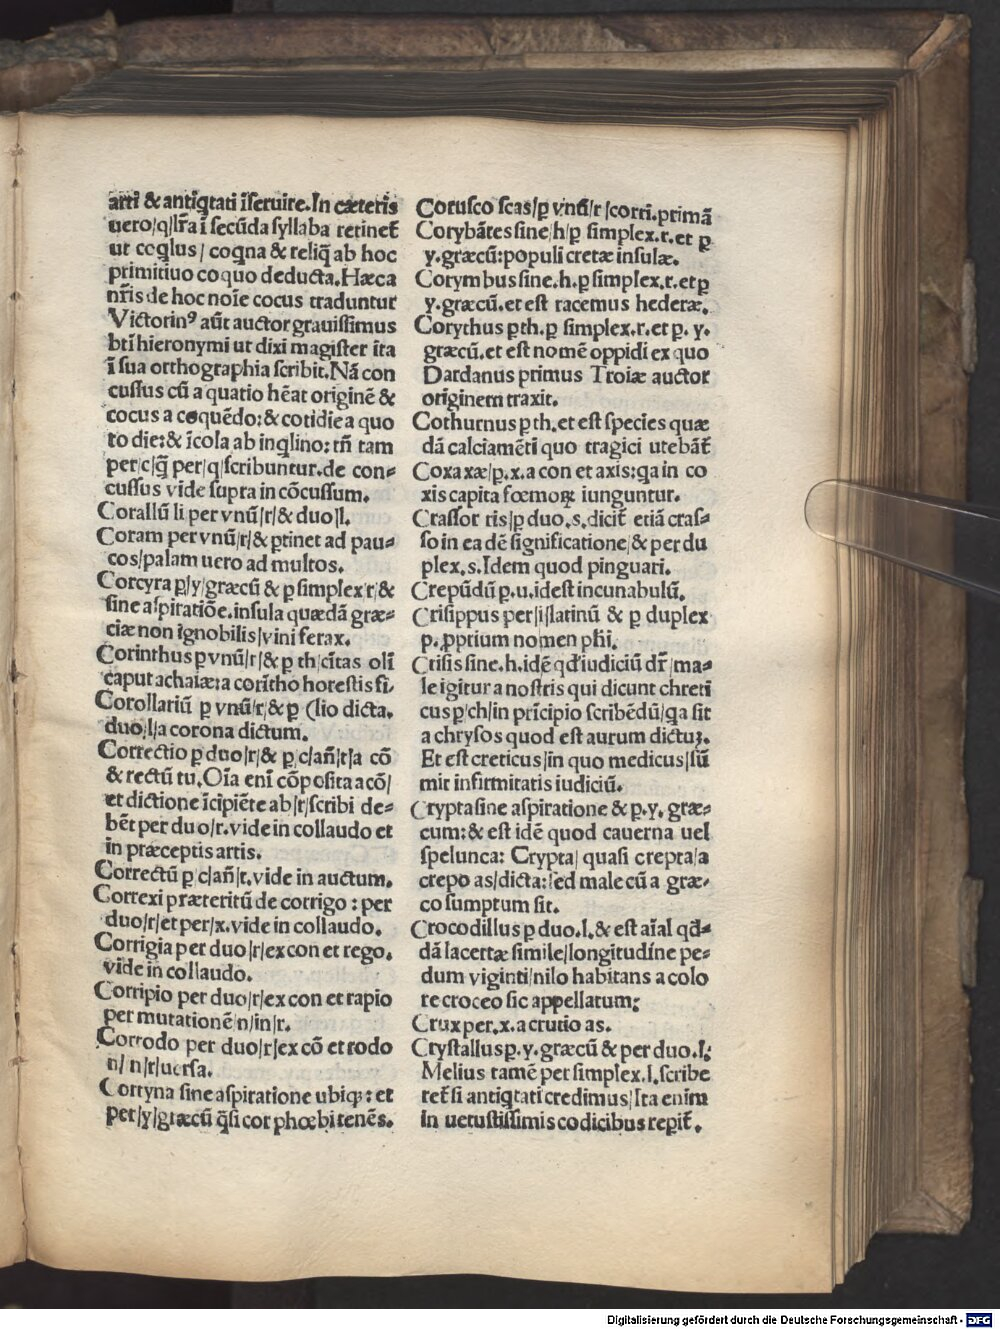 arti & antiq̃tati ĩseruire. In cæteris
uero/q/lr̃a ĩ secũda syllaba retinet̃
ut coq̃lus/ coq̃na & reliq̃ ab hoc
primitiuo coquo deducta. Hæc a
nr̃is de hoc noĩe cocus traduntur
Victorinꝰ aũt auctor grauissimus
bti hieronymi ut dixi magister ita
ĩ sua orthographia scribit. Nã con
cussus cũ a quatio hẽat originẽ &
cocus a coquẽdo: & cotidie a quo
to die: & ĩcola ab inq̃lino: tñ tam
per/c/q̃ per/q/scribuntur. de con⸗
cussus vide supra in cõcussum.
Corallũ li per vnũ/r/& duo/l.
Coram per vnũ/r/& ꝑtinet ad pau⸗
cos/palam uero ad multos.
Corcyra ꝑ/y/græcũ & ꝑ simplex/r/&
sine aspiratiõe. insula quædã græ⸗
ciæ non ignobilis/vini ferax.
Corinthus ꝑ vnũ/r/& ꝑ th/ciuitas oli
caput achaiæ: a corĩtho horestis fi⸗
Corollariũ ꝑ vnũ/r/& ꝑ (lio dicta.
duo/l/a corona dictum.
Correctio ꝑ duo/r/& ꝑ/c/añ/t/a cõ
& rectũ tu. Oĩa eni cõposita a cõ/
et dictione ĩcipiẽte ab/r/scribi de⸗
bẽt per duo/r. vide in collaudo et
in præceptis artis.
Correctũ ꝑ/c/añ/t. vide in auctum.
Correxi præteritũ de corrigo : per
duo/r/et per/x. vide in collaudo.
Corrigia per duo/r/ex con et rego.
vide in collaudo.
Corripio per duo/r/ex con et rapio
per mutationẽ/n/in/r.
Corrodo per duo/r/ex cõ et rodo
n/ in/r/uersa.
Cortyna sine aspiratione ubiqꝫ: et
per/y/græcũ q̃si cor phœbi tenẽs.
Corusco scas/ꝑ vnũ/r/corri. primã
Corybãtes sine/h/ꝑ simplex.r. et ꝑ
y. græcũ: populi cretæ insulæ.
Corymbus sine.h. ꝑ simplex.r. et ꝑ
y. græcũ. et est racemus hederæ.
Corythus ꝑ th. ꝑ simplex.r. et ꝑ. y.
græcũ. et est nomẽ oppidi ex quo
Dardanus primus Troiæ auctor
originem traxit.
Cothurnus ꝑ th. et est species quæ
dã calciamẽti quo tragici utebãt̃
Coxa xæ/ꝑ.x. a con et axis: qa in co
xis capita fœmoꝝ iunguntur.
Crassor ris/ꝑ duo.s. dicit̃ etiã cras⸗
so in eadẽ significatione/& per du
plex.s. Idem quod pinguari.
Crepũdũ ꝑ.u. idest incunabulũ.
Crisippus per/i/latinũ & ꝑ duplex
p. ꝓprium nomen phi.
Crisis sine.h. idẽ qd̃ iudiciũ dr̃/ma⸗
le igitur a nostris qui dicunt chreti
cus ꝑ/ch/in pricipio scribẽdũ/qa sit
a chrysos quod est aurum dictuꝫ.
Et est creticus/in quo medicus/sũ
mit infirmitatis iudiciũ.
Crypta sine aspiratione & ꝑ.y. græ⸗
cum: & est idẽ quod cauerna uel
spelunca: Crypta/ quasi crepta/a
crepo as/dicta: sed male cũ a græ⸗
co sumptum sit.
Crocodillus ꝑ duo.l. & est aĩal qd̃⸗
dã lacertæ simile/longitudine pe⸗
dum viginti/nilo habitans a colo
re croceo sic appellatum:
Crux per.x. a crutio as.
Crystallus ꝑ.y. græcũ & per duo.l:
Melius tamẽ per simplex.l. scribe
ret̃ si antiq̃tati credimus/Ita enim
in uetustissimis codicibus reperit̃.
Digitalisierung gefördert durch die Deutsche Forschungsgemeinschaft - DFG